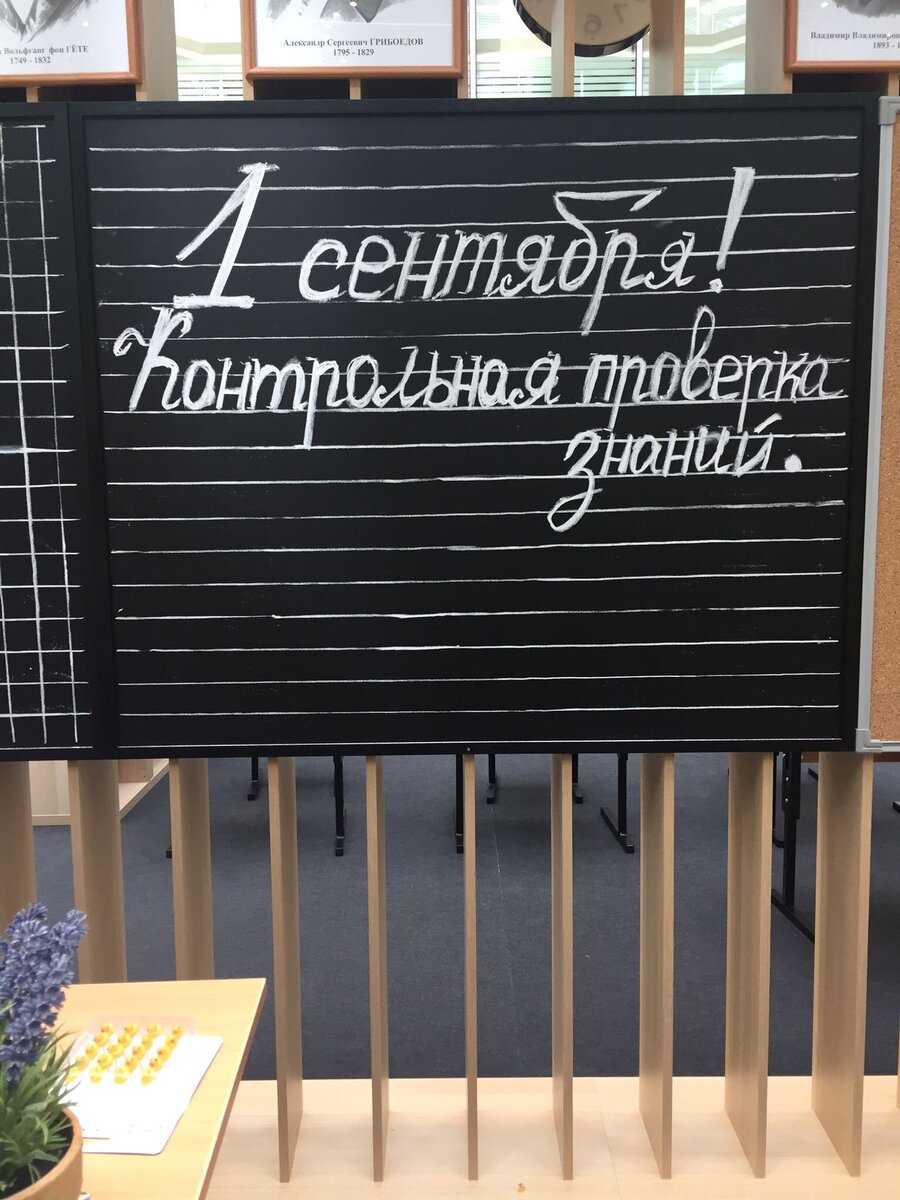 Вольфганг фон ГЁТЕ
1749 - 1832
Александр Сергеевич ГРИБОЕДОВ
1795 - 1829
Владимир Владимиров
1893 - 1
6 7
1 сентября!
Контрольная проверка
знаний.